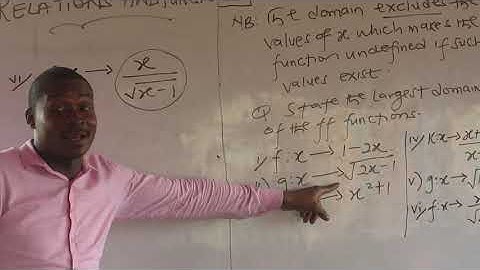 RELATIONS AND
vi/ x → x/√x-1
NB: The domain excludes the
values of x which makes the
function undefined if such
values exist.
Q. State the largest domain
of the ff functions.
i/ f:x → 1-2x
ii) g:x → √2x-1
→ x²+1
iv) k:x → x+
x-
v) g:x → √
vi) f:x → x
√